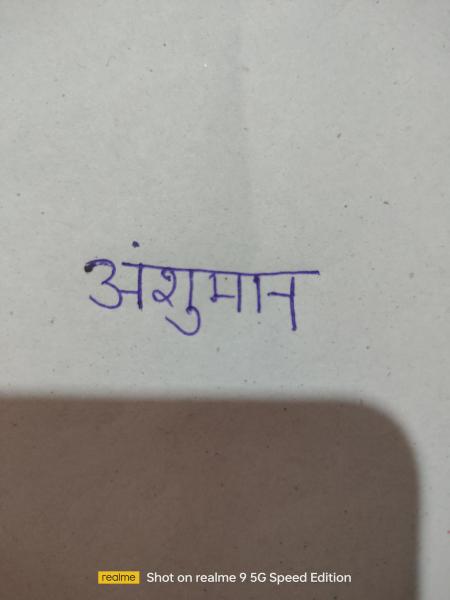 अंशुमान
realme Shot on realme 9 5G Speed Edition